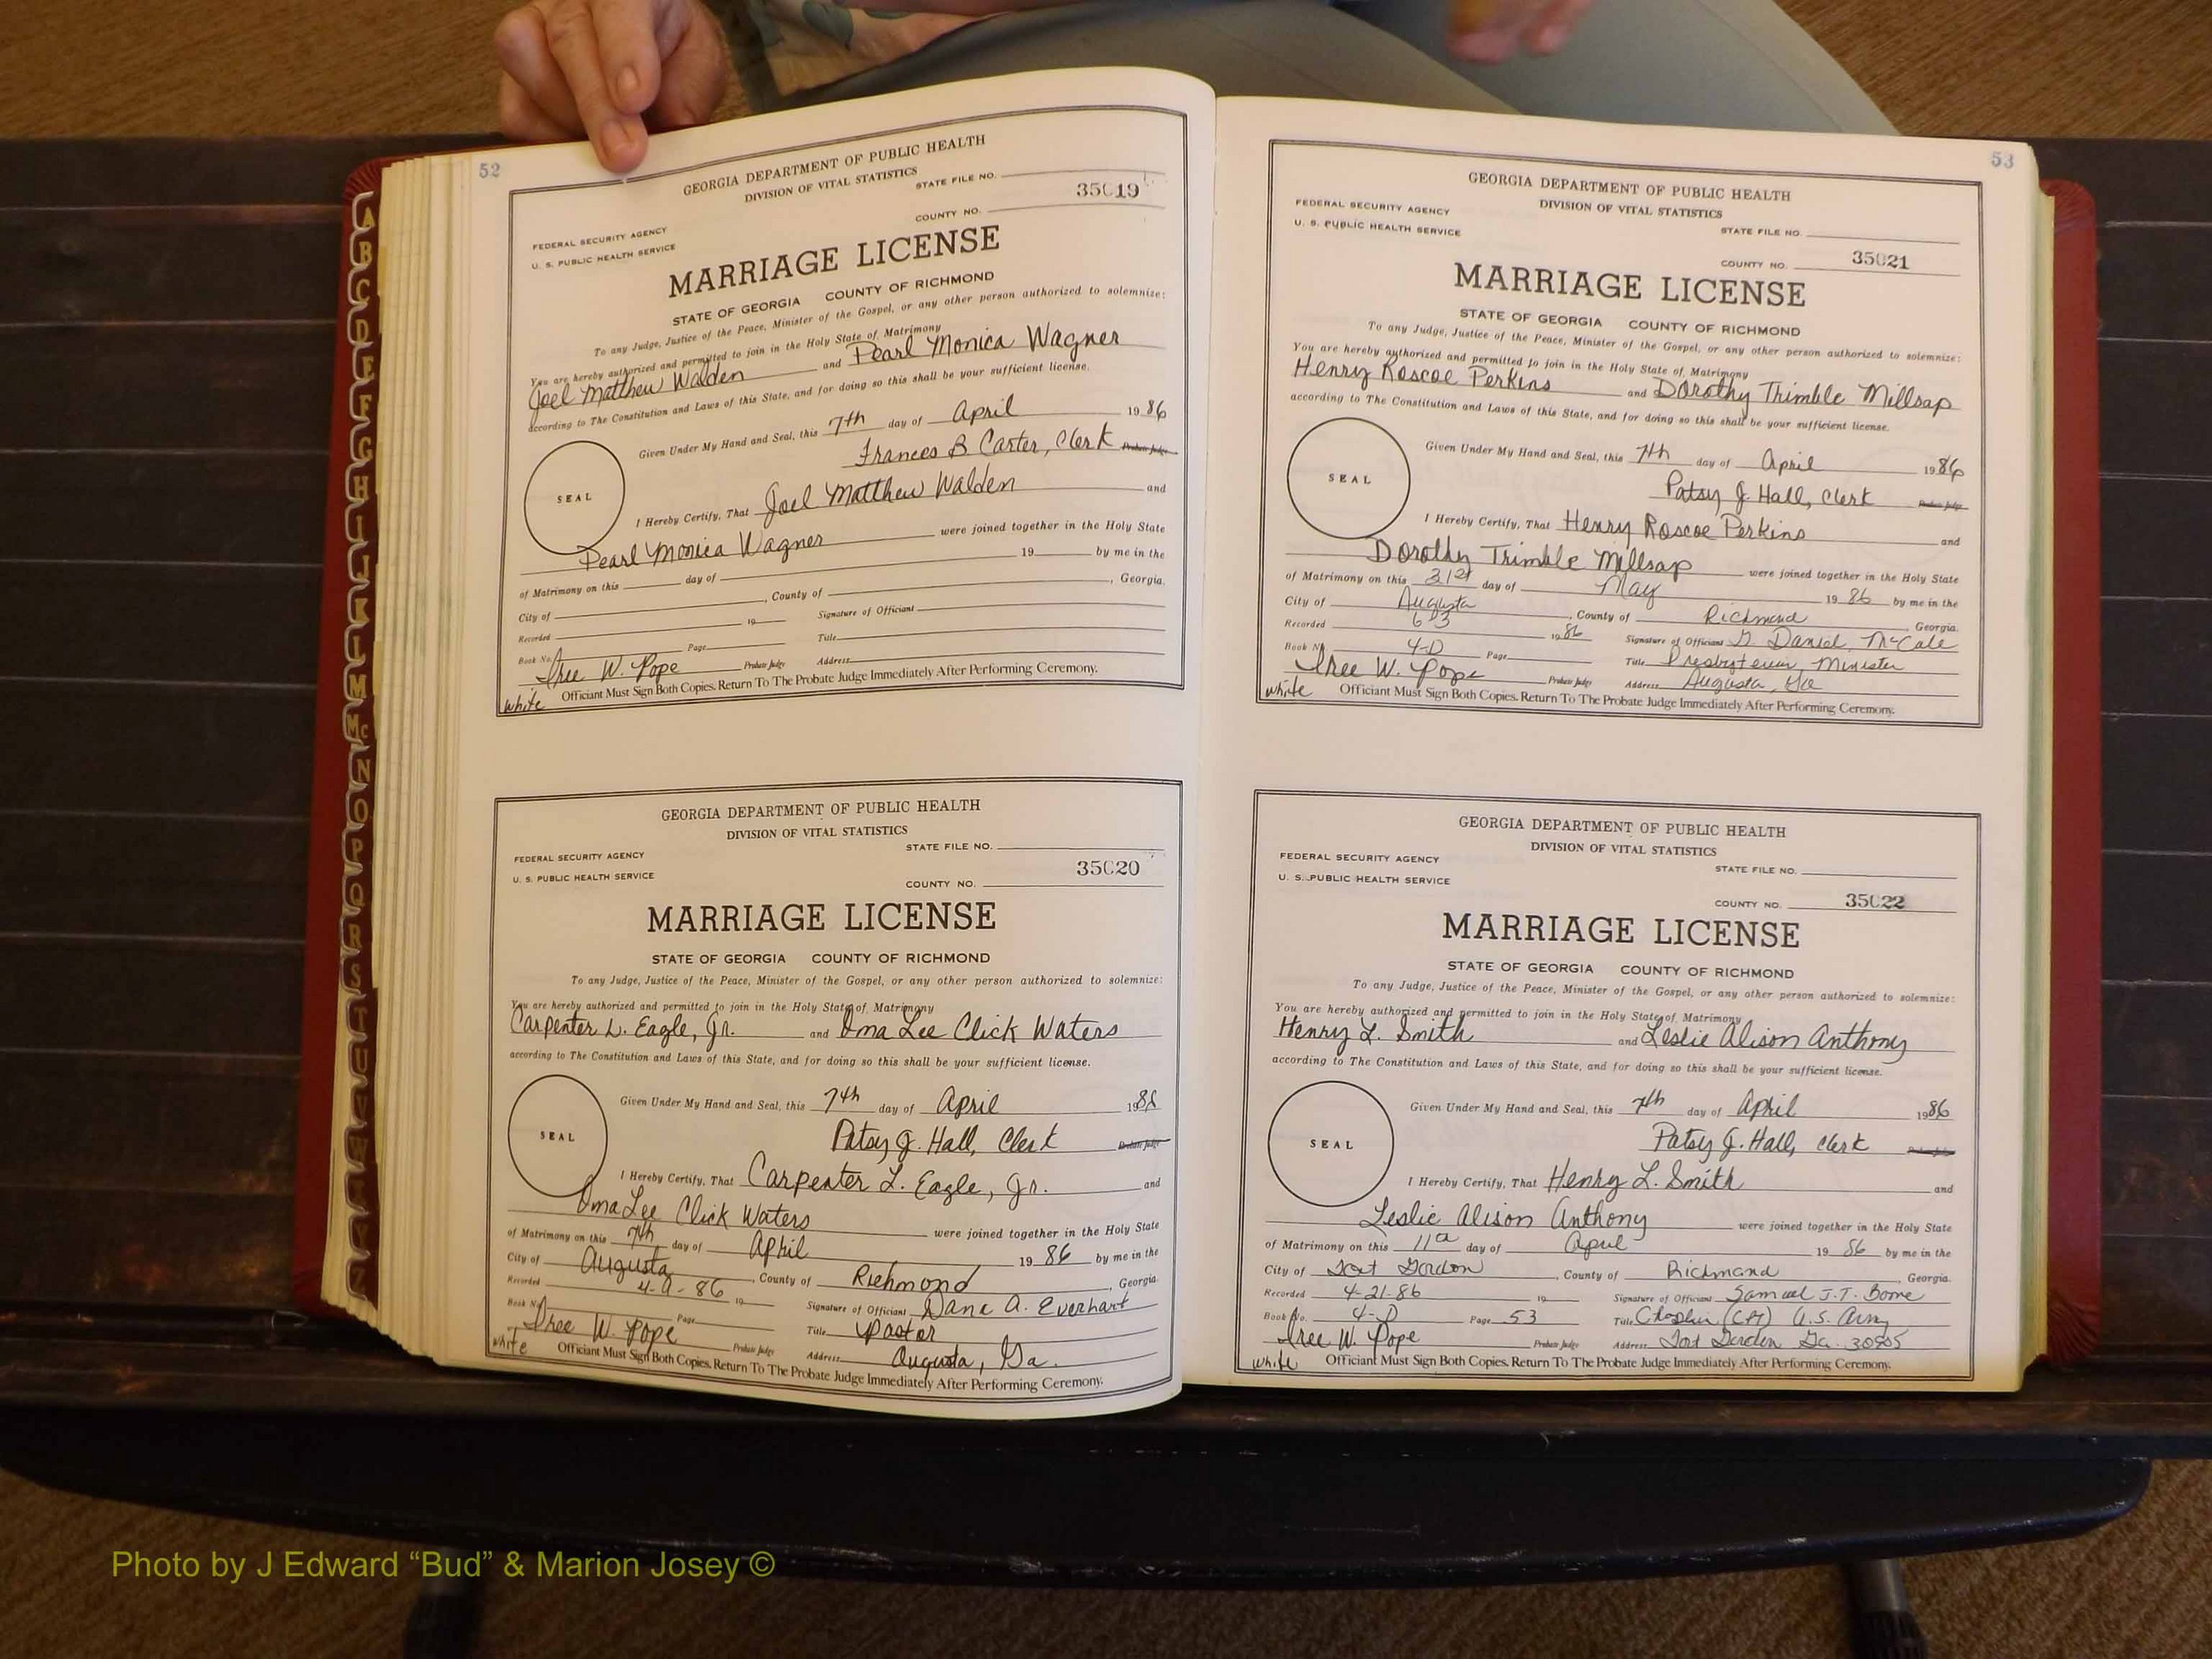 A
B
C
D
E
F
G
H
I
J
K
L
M
Mc
N
O
P
Q
R
S
T
U
V
W
52
GEORGIA DEPARTMENT OF PUBLIC HEALTH
DIVISION OF VITAL STATISTICS
STATE FILE NO.
35019
COUNTY NO.
FEDERAL SECURITY AGENCY
U. S. PUBLIC HEALTH SERVICE
MARRIAGE LICENSE
STATE OF GEORGIA COUNTY OF RICHMOND
To any Judge, Justice of the Peace, Minister of the Gospel, or any other person authorized to solemnize:
You are hereby authorized and permitted to join in the Holy State of Matrimony
Joel Matthew Walden and Pearl Monica Wagner
according to The Constitution and Laws of this State, and for doing so this shall be your sufficient license.
Given Under My Hand and Seal, this 7th day of April 1986
Frances B Carter, Clerk Probate Judge
SEAL
I Hereby Certify, That Joel Matthew Walden and
Pearl Monica Wagner were joined together in the Holy State
of Matrimony on this day of 19 by me in the
City of , County of , Georgia.
Recorded 19 Signature of Officiant
Book No. Page Title
Iree W. Pope Probate Judge Address
white Officiant Must Sign Both Copies. Return To The Probate Judge Immediately After Performing Ceremony.
GEORGIA DEPARTMENT OF PUBLIC HEALTH
DIVISION OF VITAL STATISTICS
STATE FILE NO.
FEDERAL SECURITY AGENCY
U. S. PUBLIC HEALTH SERVICE
COUNTY NO. 35020
MARRIAGE LICENSE
STATE OF GEORGIA COUNTY OF RICHMOND
To any Judge, Justice of the Peace, Minister of the Gospel, or any other person authorized to solemnize:
You are hereby authorized and permitted to join in the Holy State of Matrimony
Carpenter L. Eagle, Jr. and Oma Lee Click Waters
according to The Constitution and Laws of this State, and for doing so this shall be your sufficient license.
Given Under My Hand and Seal, this 7th day of April 1986
Patsy J. Hall, Clerk Probate Judge
SEAL
I Hereby Certify, That Carpenter L. Eagle, Jr. and
Oma Lee Click Waters were joined together in the Holy State
of Matrimony on this 7th day of April 19 86 by me in the
City of Augusta , County of Richmond , Georgia.
Recorded 4-9-86 19 Signature of Officiant Dane A. Everhart
Book No. Page Title Pastor
Iree W. Pope Probate Judge Address Augusta, Ga.
white Officiant Must Sign Both Copies. Return To The Probate Judge Immediately After Performing Ceremony.
53
GEORGIA DEPARTMENT OF PUBLIC HEALTH
DIVISION OF VITAL STATISTICS
FEDERAL SECURITY AGENCY
U. S. PUBLIC HEALTH SERVICE
STATE FILE NO.
COUNTY NO. 35021
MARRIAGE LICENSE
STATE OF GEORGIA COUNTY OF RICHMOND
To any Judge, Justice of the Peace, Minister of the Gospel, or any other person authorized to solemnize:
You are hereby authorized and permitted to join in the Holy State of Matrimony
Henry Roscoe Perkins and Dorothy Trimble Millsap
according to The Constitution and Laws of this State, and for doing so this shall be your sufficient license.
Given Under My Hand and Seal, this 7th day of April 1986
Patsy J. Hall, Clerk Probate Judge
SEAL
I Hereby Certify, That Henry Roscoe Perkins and
Dorothy Trimble Millsap were joined together in the Holy State
of Matrimony on this 31st day of May 19 86 by me in the
City of Augusta , County of Richmond , Georgia.
Recorded 6 3 1986 Signature of Officiant Daniel McCale
Book No. 4-D Page Title Presbyterian Minister
Iree W. Pope Probate Judge Address Augusta, Ga
white Officiant Must Sign Both Copies. Return To The Probate Judge Immediately After Performing Ceremony.
GEORGIA DEPARTMENT OF PUBLIC HEALTH
DIVISION OF VITAL STATISTICS
FEDERAL SECURITY AGENCY
U. S. PUBLIC HEALTH SERVICE
STATE FILE NO.
COUNTY NO. 35022
MARRIAGE LICENSE
STATE OF GEORGIA COUNTY OF RICHMOND
To any Judge, Justice of the Peace, Minister of the Gospel, or any other person authorized to solemnize:
You are hereby authorized and permitted to join in the Holy State of Matrimony
Henry L. Smith and Leslie Alison Anthony
according to The Constitution and Laws of this State, and for doing so this shall be your sufficient license.
Given Under My Hand and Seal, this 7th day of April 1986
Patsy J. Hall, Clerk
SEAL
I Hereby Certify, That Henry L. Smith and
Leslie Alison Anthony were joined together in the Holy State
of Matrimony on this 11th day of April 19 86 by me in the
City of Fort Gordon , County of Richmond , Georgia.
Recorded 4-21-86 19 Signature of Officiant Samuel J.T. Boone
Book No. 4-D Page 53 Title Chaplin (CPT) U.S. Army
Iree W. Pope Probate Judge Address Fort Gordon Ga. 30905
white Officiant Must Sign Both Copies. Return To The Probate Judge Immediately After Performing Ceremony.
Photo by J Edward “Bud” & Marion Josey ©